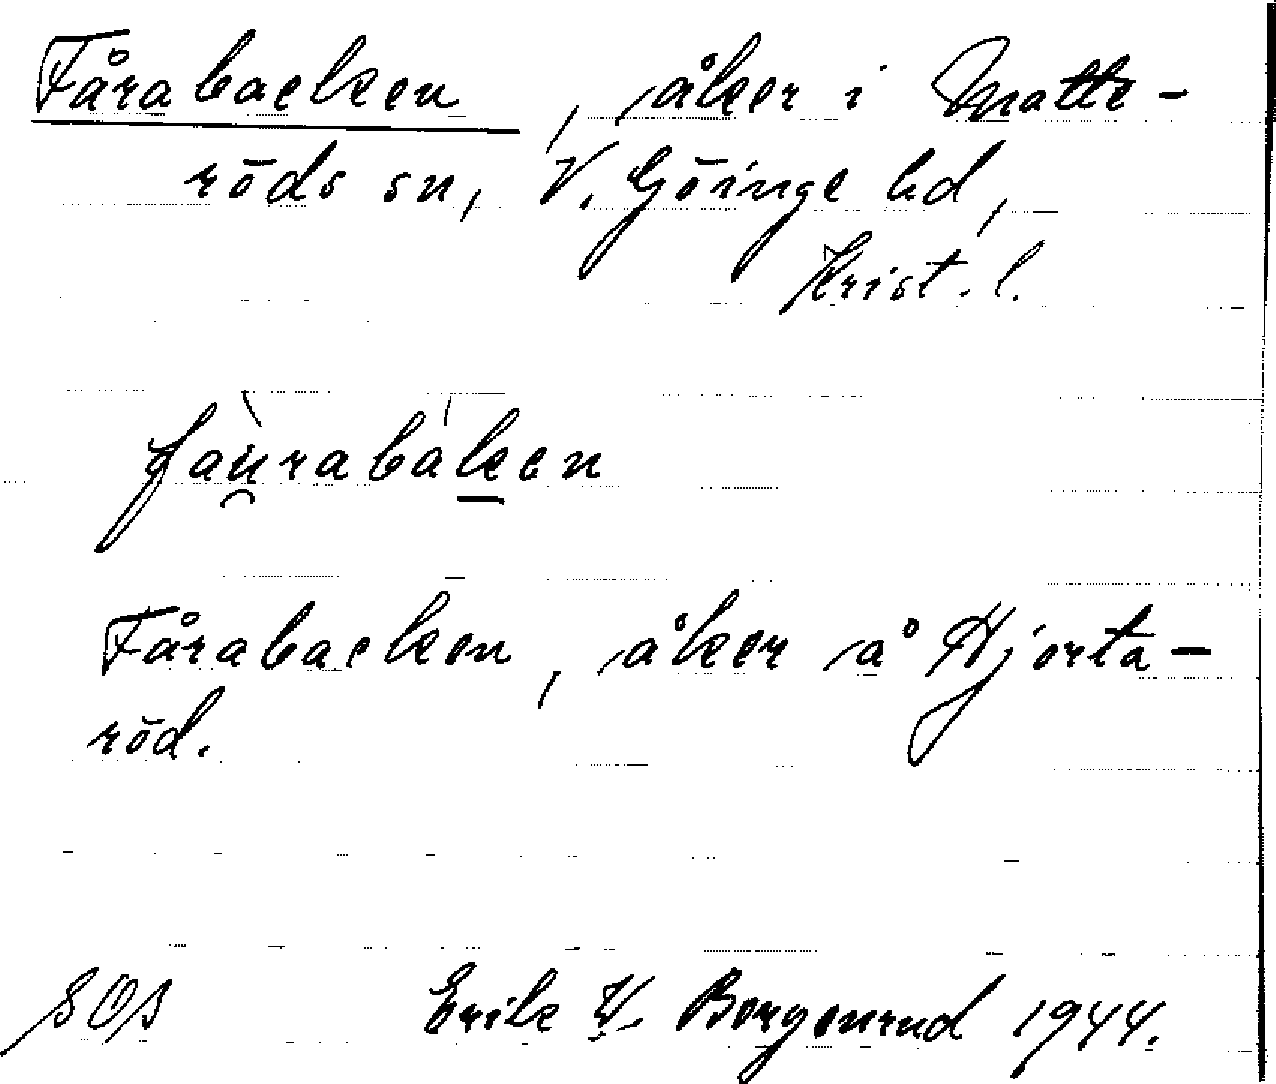 Fårabacken, åker i Matte-
röds sn, V. Göinge hd,
Krist. l.
fau̯rabak̲en
Fårabacken, åker å Hjorta-
röd.
SOS Erik W. Borgenrud 1944.